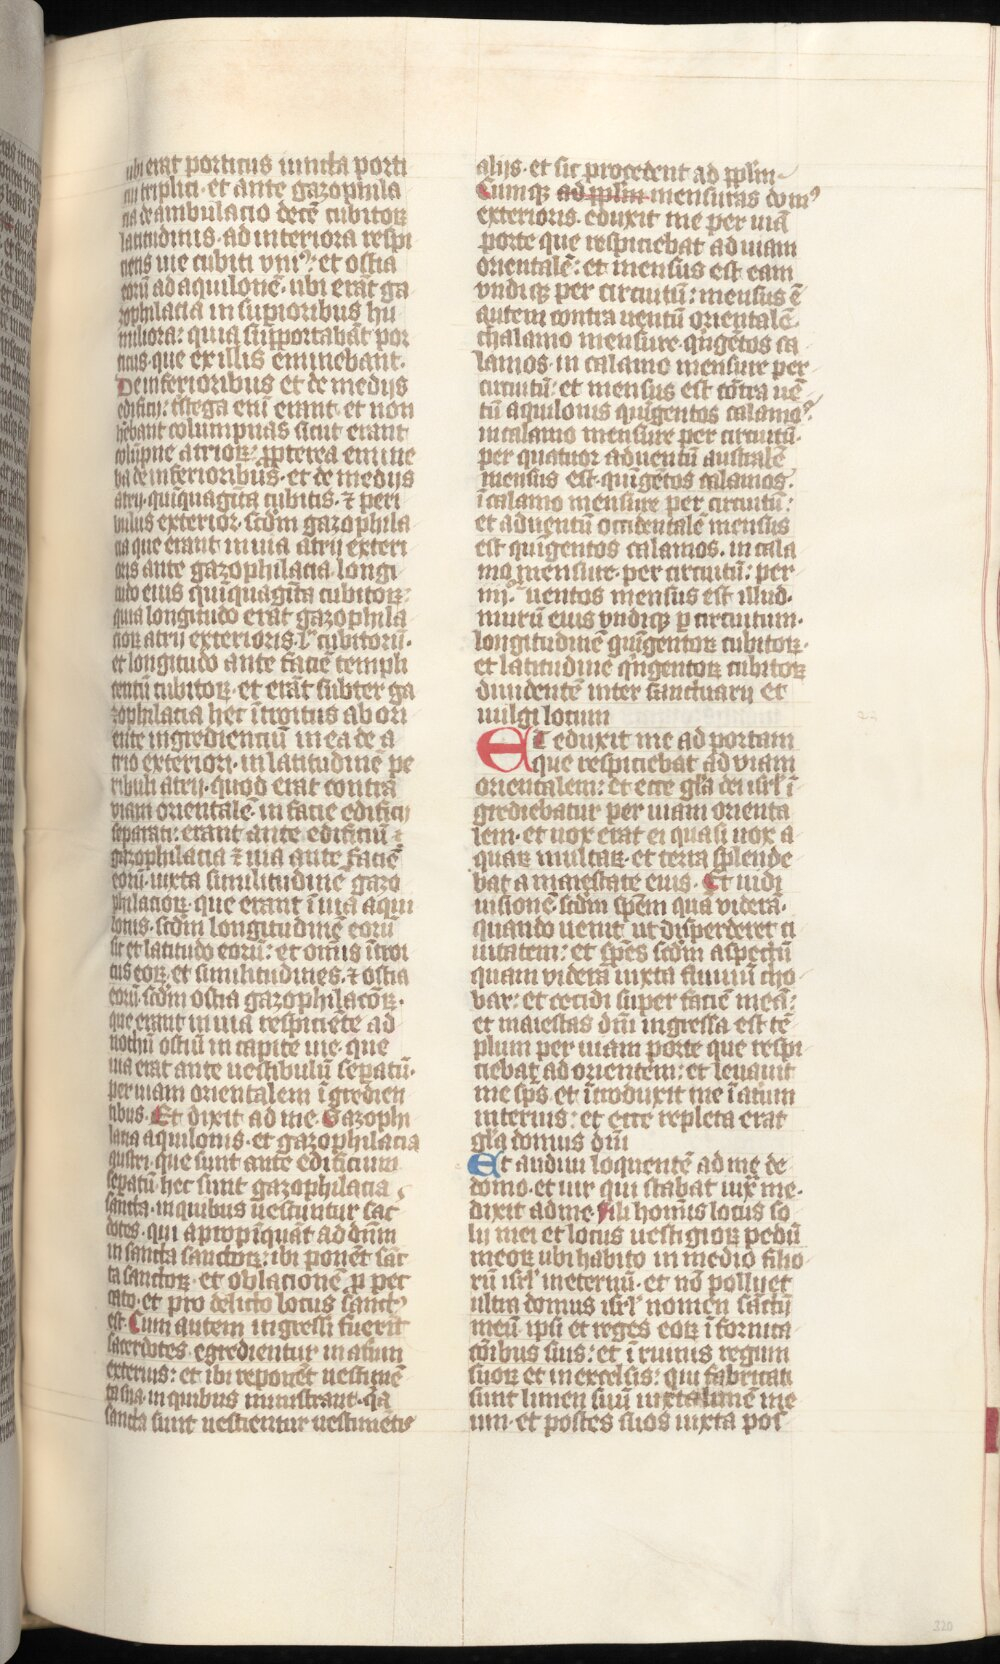 ubi erat porticus iuncta porti
cui triplici · et ante gazophila
cia deambulacio decē cubitoꝝ
latitudinis · ad interiora respi
ciens uie cubiti vniꝰ · et ostia
eorū ad aquilonē · ubi erāt ga
zophilacia in supioribus hu
miliora : quia supportabāt por
ticus · que ex illis eminebant ·
De inferioribus et de medijs
edificij : tistega enī erant · et non
hēbant columpnas sicut erant
colūpne atrioꝝ : ꝓpterea emine
ba de inferioribus · et de medijs
atrij · quīquagīta cubitis · ⁊ peri
bulus exterior · scdm gazophila
cia que erant in uia atrij exteri
oris ante gazophilacia longi
tudo eius quīquagīta cubitoꝝ :
quia longitudo erat gazophila
cioꝝ atrij exterioris · lᵃ cubitorū ·
et longitudo ante faciē templi
centū cubitoꝝ · et erāt subter ga
zophilacia hec ītroitus ab ori
ente ingredienciū in ea de a
trio exteriori · in latitudine pe
ribuli atrij · quod erat contra
viam orientalē · in facie edificij
separati : erant ante edificiū ⁊
gazophilacia ⁊ uia ante faciē
eorū · iuxta similitudinē gazo
philacioꝝ · que erant ī uia aqui
lonis · scdm longitudinē eorū
sic et latitudo eorū : et omīs ītroi
tus eoꝝ · et similitudines · ⁊ ostia
eorū · scdm ostia gazophilacōꝝ ·
que erant in uia respiciēte ad
nothū ostiū in capite uie · que
uia erat ante uestibulū sepatū ·
per uiam orientalem īgredien
tibus · Et dixit ad me · Gazophi
lacia aquilonis · et gazophilacia
austri · que sunt ante edificium
sepatū · hec sunt gazophilacia
sancta · in quibus uestiuntur sac
dotes · qui apropīquāt ad dn̄m
in sancta sanctoꝝ : ibi ponēt sāc
ta sanctoꝝ · et oblacionē p pec
cato · et pro delicto locus sanctꝰ
est · Cum autem ingressi fuerīt
sacerdotes · egredientur in atium
exterius : et ibi reponēt uestimē
ta sua · in quibus ministrant · qa
sancta sunt uestientur uestimētis
alijs · et sic procedent ad pplm ·
Cumqꝫ ad pplm mensuras domꝰ
exterioris · eduxit me per uiā
porte que respiciebat ad uiam
orientalē : et mensus est eam
vndiqꝫ per circuitū : mensus ē
autem contra uentū orientalē ·
chalamo mensure · qngētos ca
lamos · in calamo mensure per
circuitū : et mensus est cōtra uē
tū aquilonis quīgentos calamoꝰ :
in calamo mensure per circuitū ·
per quatuor ad uentū australē
mensus est · quīgētos calamos ·
ī calamo mensure per circuitū :
et ad uentū occidentalē mensus
est quīgentos calamos · in cala
mo mensure · per circuitū : per
iiij · uentos mensus est illud ·
murū eius vndiqꝫ p circuitum ·
longitudinē quīgentoꝝ cubitoꝝ ·
et latitudinē qngentoꝝ cubitoꝝ
diuidentē inter sanctuarij et
uulgi locum
Et eduxit me ad portam
que respiciebat ad viam
orientalem : et ecce gl̄a dei isrl' ī
grediebatur per uiam orienta
lem · et uox erat ei quasi uox a
quaꝝ multaꝝ · et terra splende
bat a maiestate eius · Et uidi
uisionē · scdm spēm quā viderā ·
quando uenit ut disperderet ci
uitatem : et spēs scdm aspectū
quam viderā iuxta fluuiū cho
bar : et cecidi super faciē meā :
et maiestas dn̄i ingressa est tē
plum per uiam porte que respi
ciebat ad orientem : et leuauit
me sp̄s et ītroduxit me ī atium
interius : et ecce repleta erat
gl̄a domus dn̄i
Et audiui loquentē ad me de
domo · et uir qui stabat iux̄ me ·
dixit ad me · Fili homīs locus so
lij mei et locus uestigioꝝ pedū
meoꝝ ubi habito in medio filio
rū isrl' in eternū · et nō polluet
ultra domus isrl' nomen sāctū
meū ipsi et reges eoꝝ ī fornica
cōibus suis : et ī ruinis regum
suoꝝ et in excelsis : qui fabricati
sunt limen suū iuxta limē me
um · et postes suos iuxta pos
320